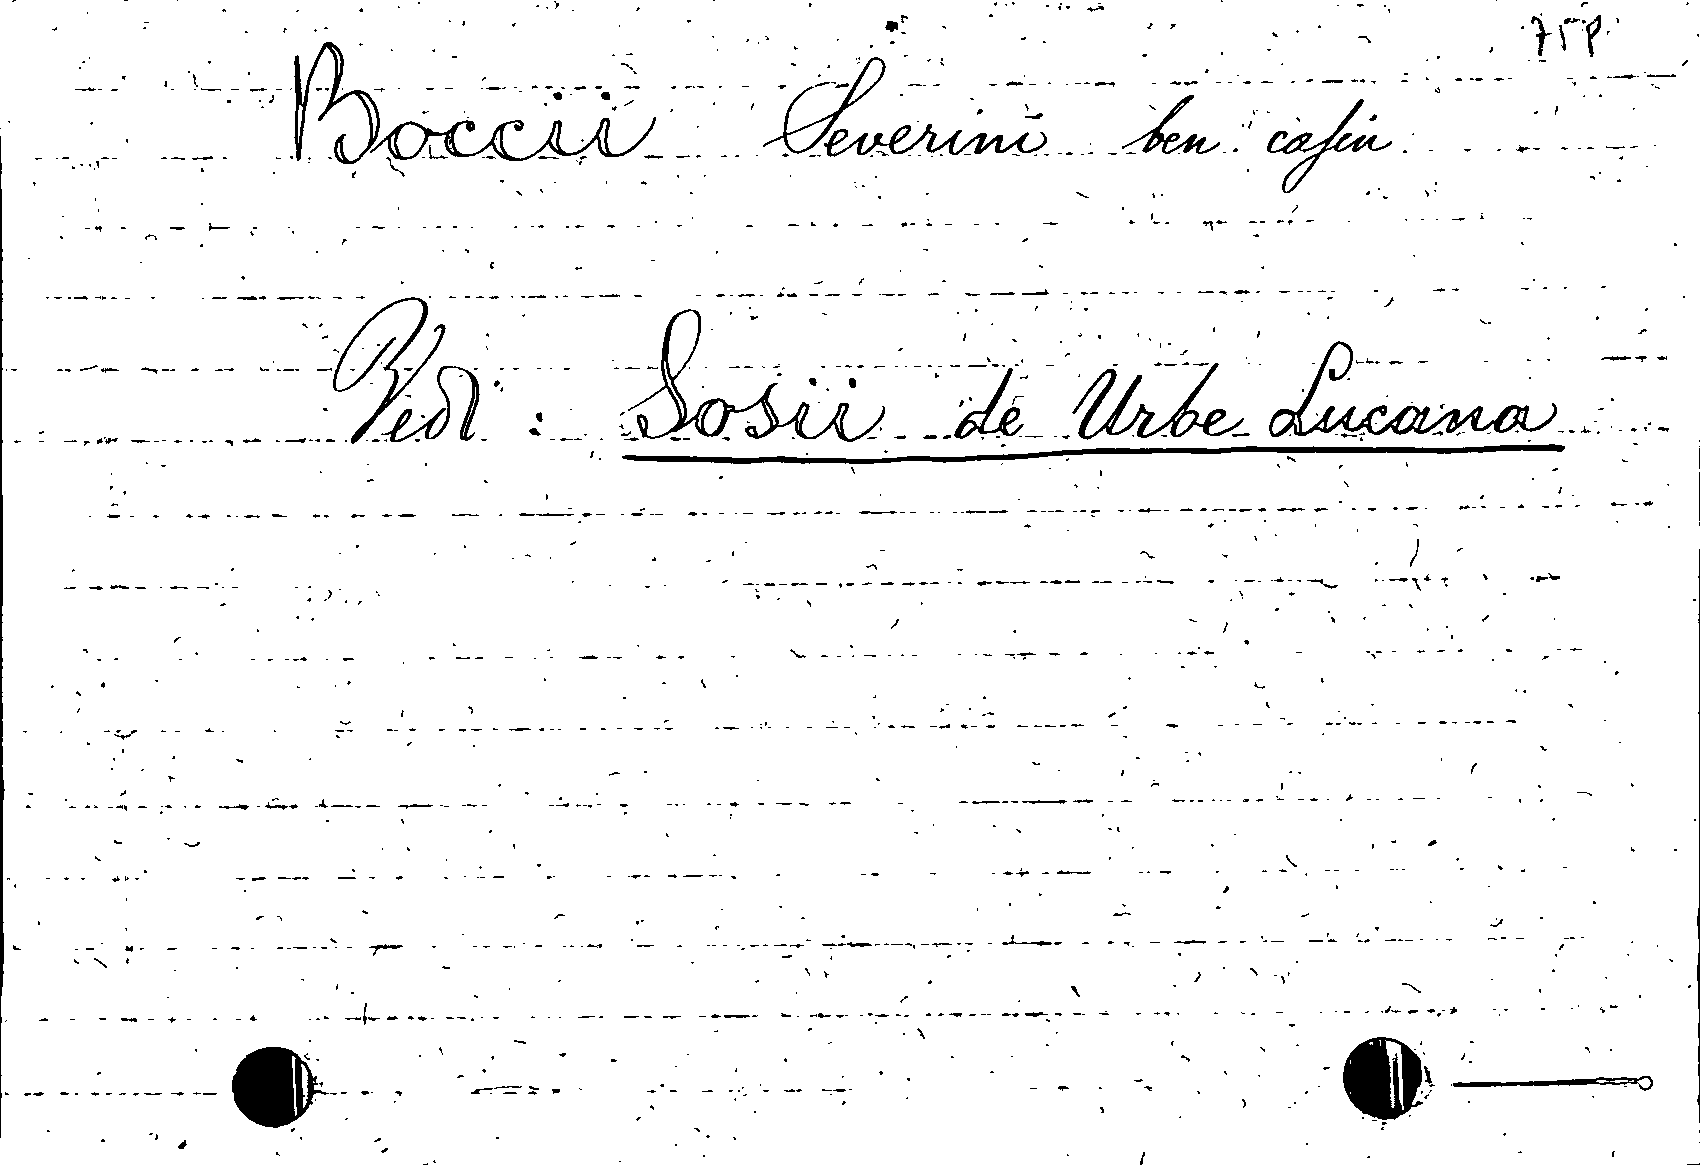 Boccii Severini ben casin
Vedi : Sosii de Urbe Lucana